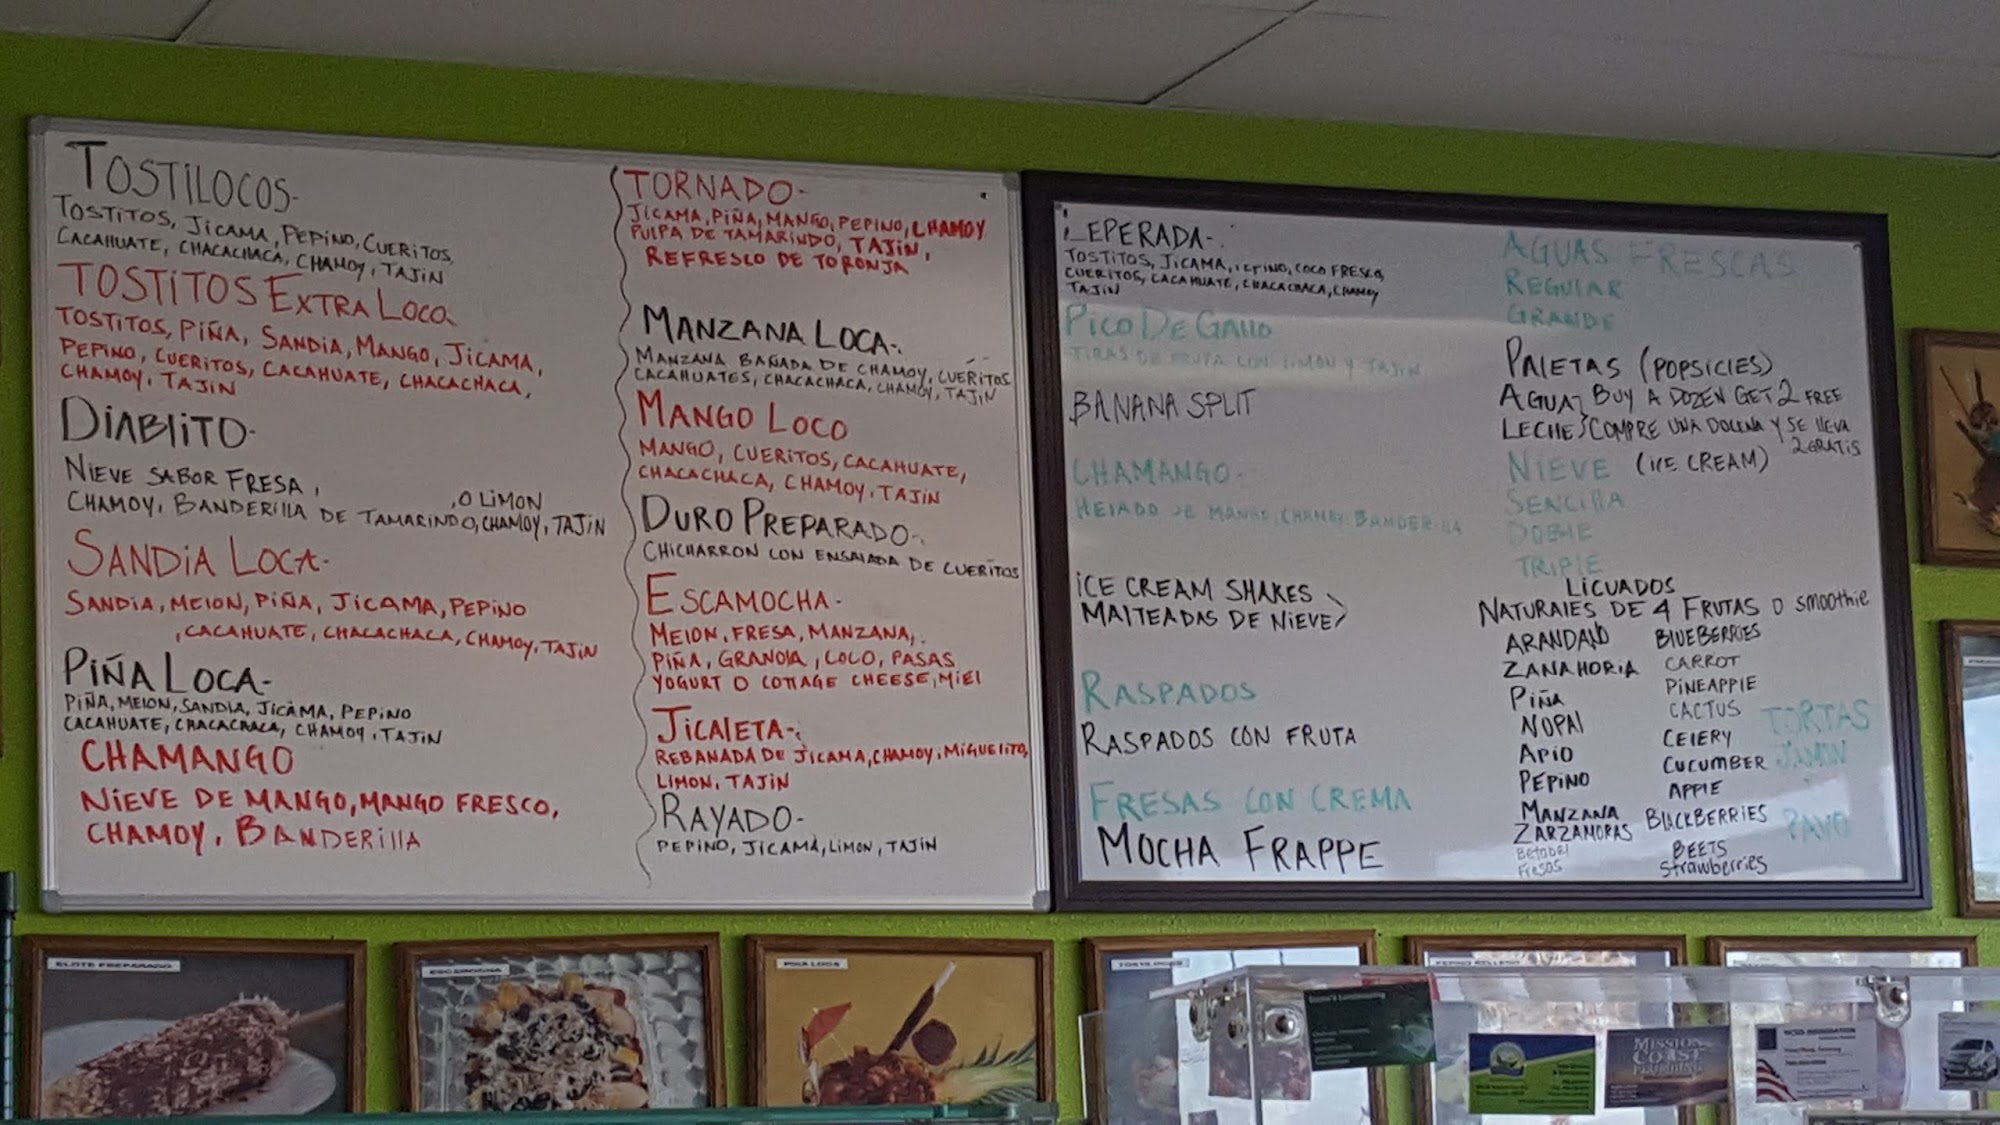 TOSTILOCOS-
TOSTITOS, JICAMA, PEPINO, CUERITOS,
CACAHUATE, CHACACHACA, CHAMOY, TAJIN
TOSTITOS EXTRA LOCO
TOSTITOS, PIÑA, SANDIA, MANGO, JICAMA,
PEPINO, CUERITOS, CACAHUATE, CHACACHACA,
CHAMOY, TAJIN
DIABLITO-
NIEVE SABOR FRESA,
, O LIMON
CHAMOY, BANDERILLA DE TAMARINDO, CHAMOY, TAJIN
SANDIA LOCA-
SANDIA, MELON, PIÑA, JICAMA, PEPINO
, CACAHUATE, CHACACHACA, CHAMOY, TAJIN
PIÑA LOCA-
PIÑA, MELON, SANDIA, JICAMA, PEPINO
CACAHUATE, CHACACHACA, CHAMOY, TAJIN
CHAMANGO
NIEVE DE MANGO, MANGO FRESCO,
CHAMOY, BANDERILLA
TORNADO-
JICAMA, PIÑA, MANGO, PEPINO, CHAMOY
PULPA DE TAMARINDO, TAJIN,
REFRESCO DE TORONJA
MANZANA LOCA-
MANZANA BAÑADA DE CHAMOY, CUERITOS
CACAHUATES, CHACACHACA, CHAMOY, TAJIN
MANGO LOCO
MANGO, CUERITOS, CACAHUATE,
CHACACHACA, CHAMOY, TAJIN
DURO PREPARADO-
CHICHARRON CON ENSALADA DE CUERITOS
ESCAMOCHA-
MELON, FRESA, MANZANA,
PIÑA, GRANOLA, COCO, PASAS
YOGURT O COTTAGE CHEESE, MIEL
JICALETA-
REBANADA DE JICAMA, CHAMOY, MIGUELITO,
LIMON, TAJIN
RAYADO-
PEPINO, JICAMA, LIMON, TAJIN
LEPERADA-
TOSTITOS, JICAMA, PEPINO, COCO FRESCO,
CUERITOS, CACAHUATE, CHACACHACA, CHAMOY
TAJIN
PICO DE GALLO
TIRAS DE FRUTA CON LIMON Y TAJIN
BANANA SPLIT
CHAMANGO-
HELADO DE MANGO, CHAMOY, BANDERILLA
ICE CREAM SHAKES
MALTEADAS DE NIEVE
RASPADOS
RASPADOS CON FRUTA
FRESAS CON CREMA
MOCHA FRAPPE
AGUAS FRESCAS
REGULAR
GRANDE
PALETAS (POPSICLES)
AGUA} BUY A DOZEN GET 2 FREE
LECHE} COMPRE UNA DOCENA Y SE LLEVA
2 GRATIS
NIEVE (ICE CREAM)
SENCILLA
DOBLE
TRIPLE
LICUADOS
NATURALES DE 4 FRUTAS O smoothie
ARANDANO BLUEBERRIES
ZANAHORIA CARROT
PIÑA PINEAPPLE
NOPAL CACTUS
APIO CELERY
PEPINO CUCUMBER
MANZANA APPLE
ZARZAMORAS BLACKBERRIES
Betabel BEETS
Fresas Strawberries
TORTAS
JAMON
PAVO
ELOTE PREPARADO
ESCAMOCHA
PIÑA LOCA
TOSTILOCOS
MISSION
COAST
PLUMBING